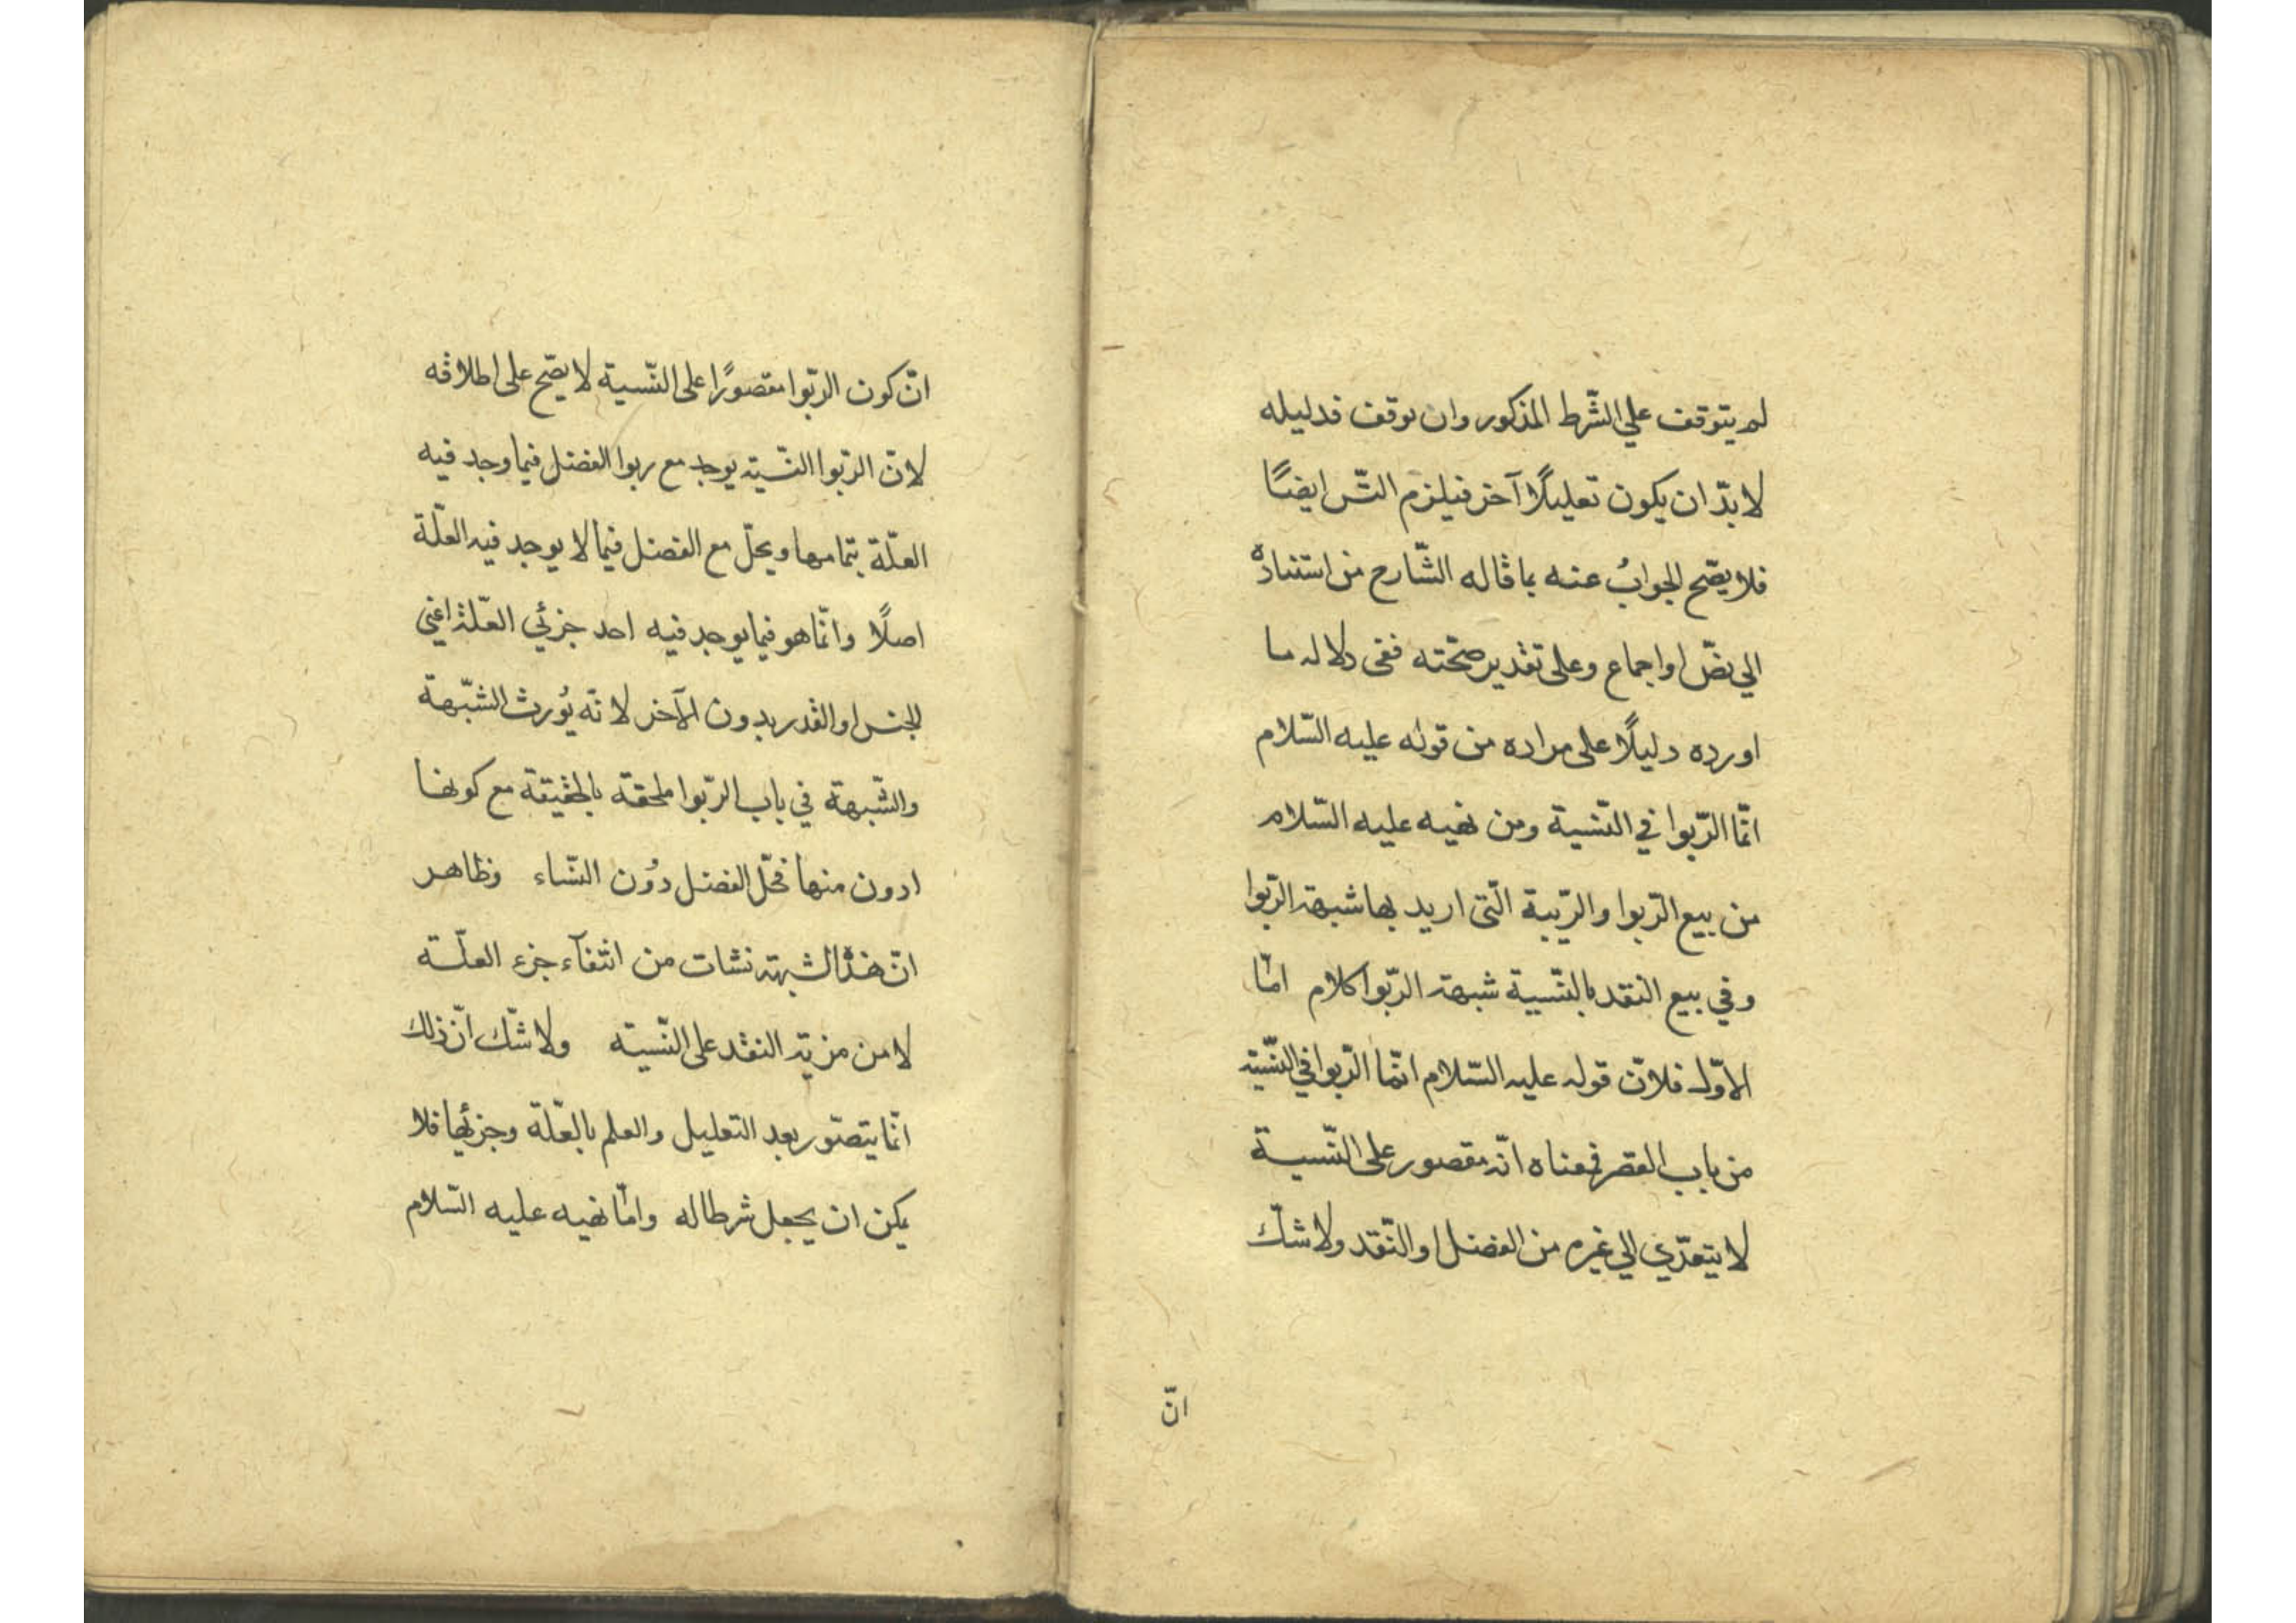 لم يتوقف علي الشّرط المذكور وان توقف فدليله
لا بدّ ان يكون تعليلًا آخر فيلزم التّس ايضًا
فلا يصّح الجوابُ عنه بما قاله الشّارح من استناده
الي نصّ او اجماع وعلى تقدير صحّته ففى دلاله ما
اورده دليلًا على مراده من قوله عليه السّلام
انّما الرّبوا في النّسية ومن نهيه عليه السّلام
من بيع الرّبوا والرّيبة الّتى اريد بها شبهة الرّبوا
وفي بيع النقد بالنّسية شبهة الرّبوا كلام امّا
الاوّل فلانّ قوله عليه السّلام انّما الرّبوا في النّسية
من باب القصر فمعناه انّه مقصور على النّسية
لا يتعدّي الي غيره من الفضل او النّقد ولا شكّ
انّ
انّ كون الرّبوا مقصورًا على النّسية لا يصّح على اطلاقه
لانّ الرّبوا النّسية يوجد مع ربوا الفضل فيما وجد فيه
العلّة بتمامها ويحلّ مع الفضل فيما لا يوجد فيه العلّة
اصلًا وانّما هو فيما يوجد فيه احد جزئي العلّة اعني
الجنس او القدر بدون الآخر لانّه يُورث الشبّهة
والشّبهة في باب الرّبوا ملحقة بالحقيقة مع كونها
ادون منها فحّل الفضل دُون النّساء وظاهر
انّ هذه الشبهة نشات من انتفآء جزء العلّة
لا من مزيّة النقد على النّسية ولا شّك انّ ذلك
انّما يتصّور بعد التعليل والعلم بالعلّة وجزئها فلا
يمكن ان يجعل شرطا له وامّا نهيه عليه السّلام